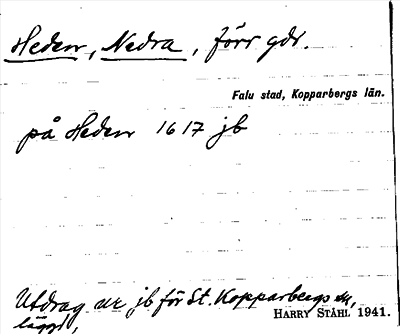 Heden, Nedra, förr gdr.
Falu stad, Kopparbergs län.
på Heden 1617 jb
Utdrag ur jb för St. Kopparbergs sn,
HARRY STÅHL 1941.